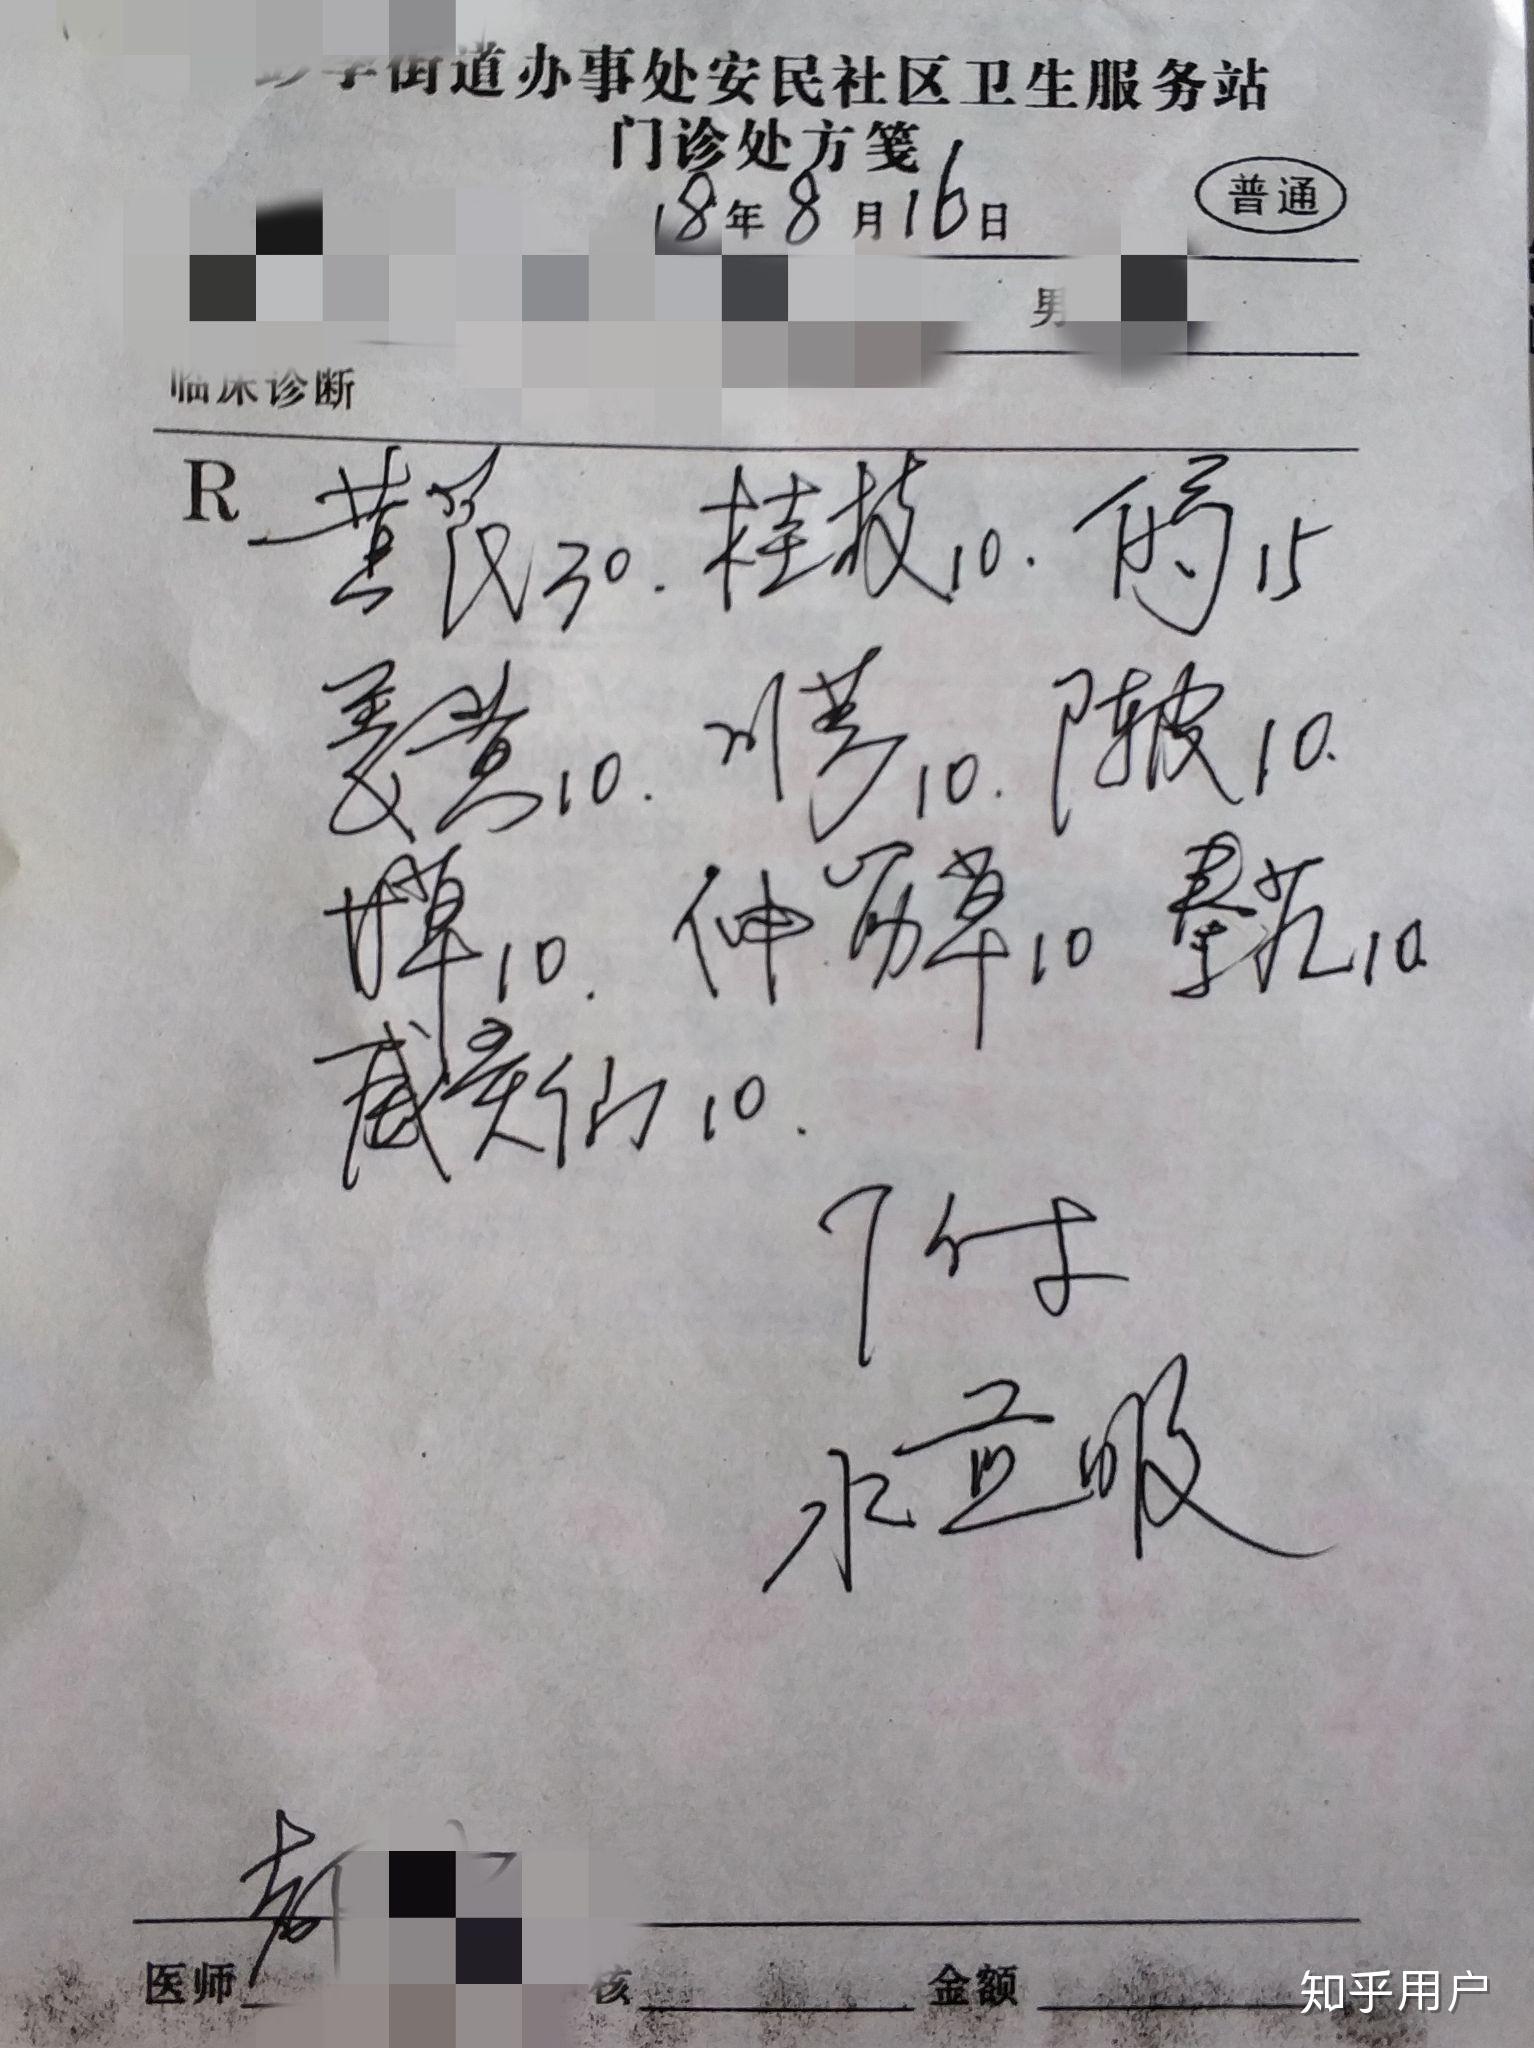 街道办事处安民社区卫生服务站
门诊处方笺
18年8月16日
普通
男
临床诊断
R 黄芪30. 桂枝10. 白芍15
姜黄10. 川芎10. 陈皮10.
甘草10. 伸筋草10 秦艽10.
威灵仙10.
7付
水煎服
医师 核 金额
知乎用户